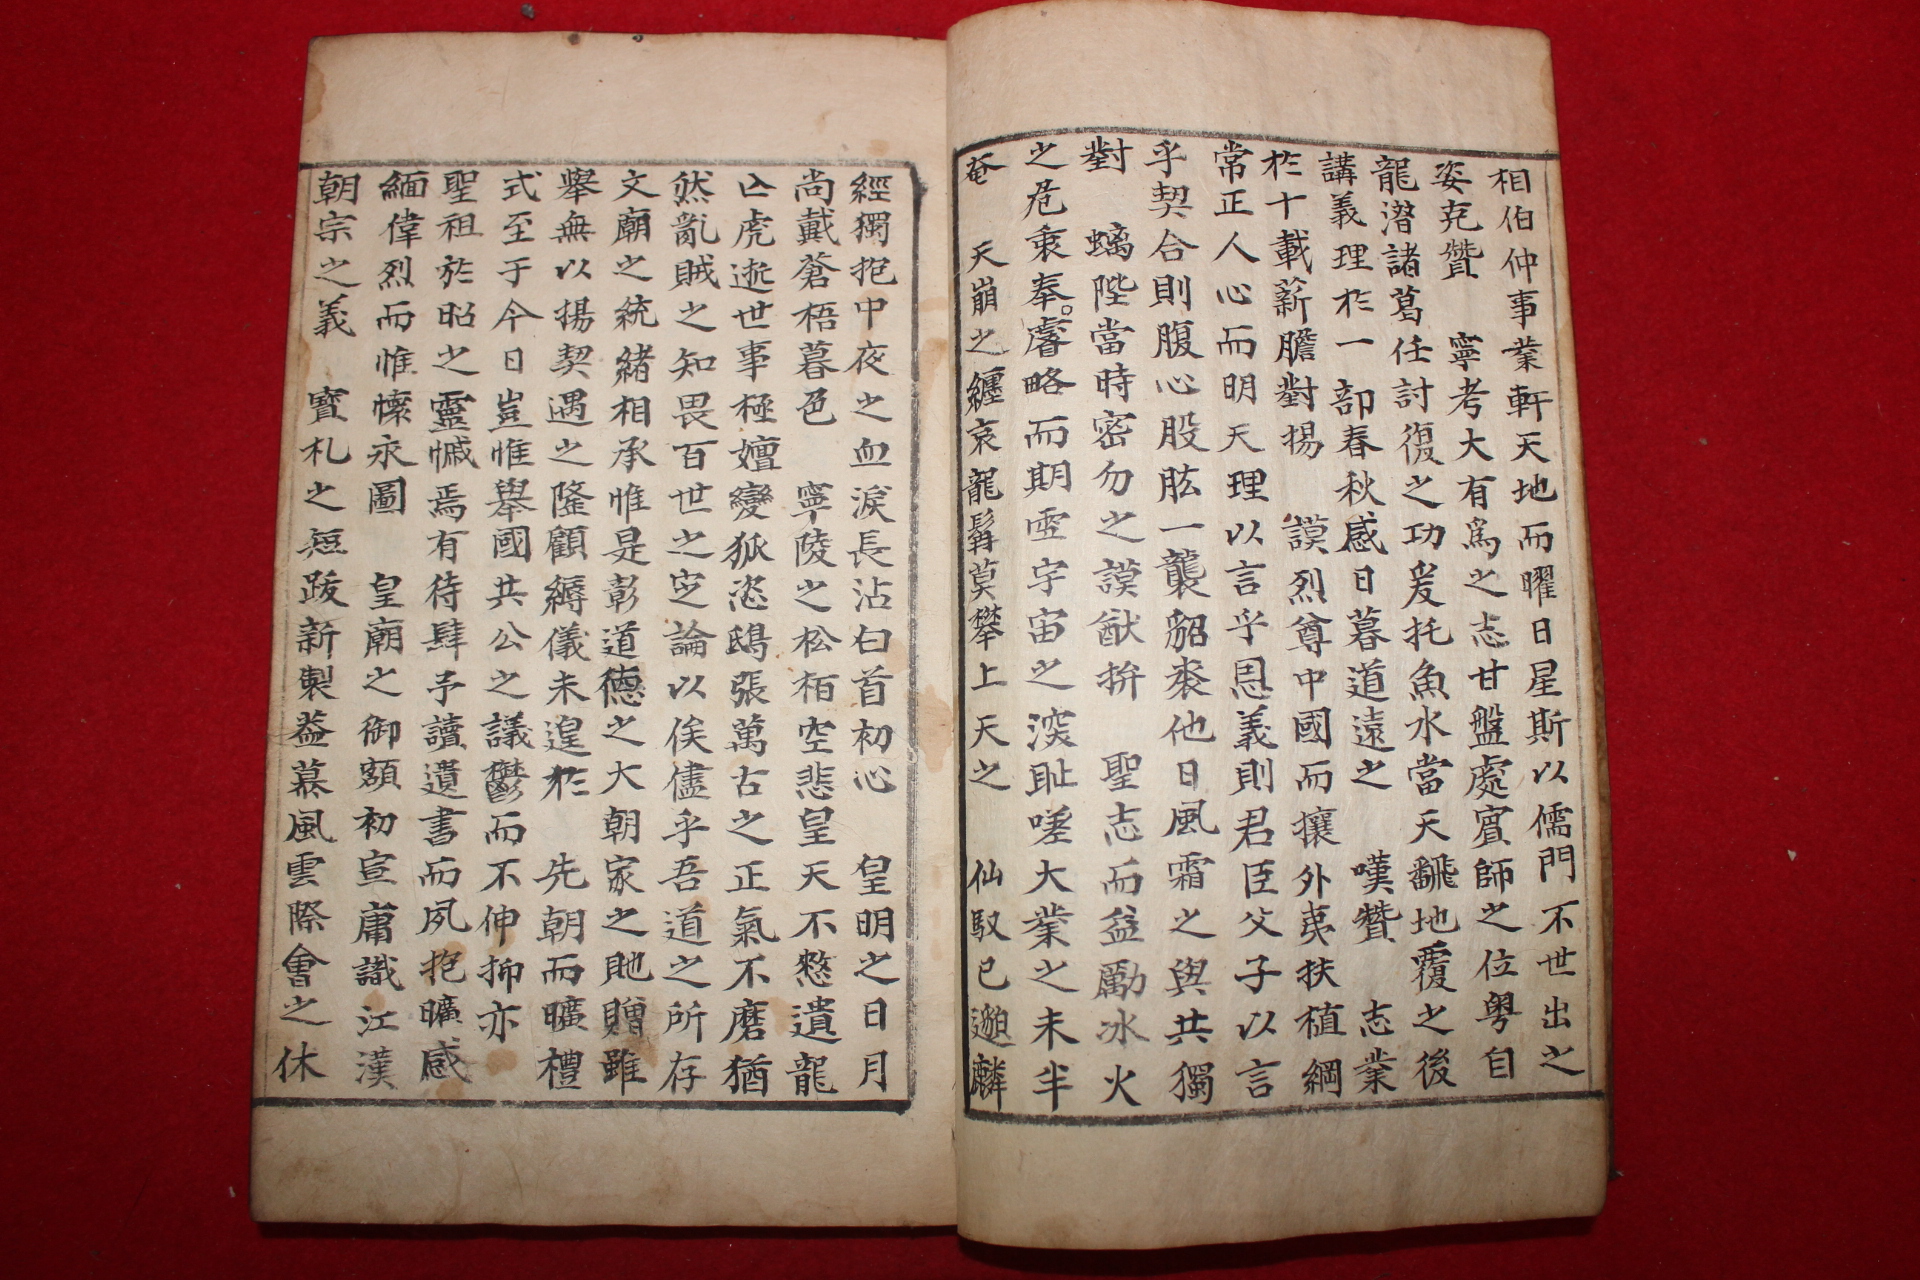 相伯仲事業軒天地而曜日星斯以儒門不世出之
姿克贊 寧考大有爲之志甘盤處賓師之位粤自
龍潛諸葛任討復之功爰托魚水當天飜地覆之後
講義理於一部春秋感日暮道遠之 嘆贊 志業
於十載薪膽對揚 謨烈尊中國而攘外夷扶植綱
常正人心而明天理以言乎恩義則君臣父子以言
乎契合則腹心股肱一襲貂裘他日風霜之與共獨
對 螭陛當時密勿之謨猷拚 聖志而益勵冰火
之危衷奉睿略而期雪宇宙之深耻嗟大業之未半
奄 天崩之纏哀龍髯莫攀上天之 仙馭已邈麟
經獨抱中夜之血淚長沾白首初心 皇明之日月
尚戴蒼梧暮色 寧陵之松栢空悲皇天不憗遺龍
亡虎逝世事極嬗變狐恣鴟張萬古之正氣不磨猶
然亂賊之知畏百世之定論以俟儘乎吾道之所存
文廟之統緖相承惟是彰道德之大朝家之貤贈雖
舉無以揚契遇之隆顧縟儀未遑於 先朝而曠禮
式至于今日豈惟舉國共公之議鬱而不伸抑亦
聖祖於昭之靈慽焉有待肆予讀遺書而夙抱曠感
緬偉烈而惟懷永圖 皇廟之御額初宣庸識江漢
朝宗之義 寶札之短跋新製益慕風雲際會之休